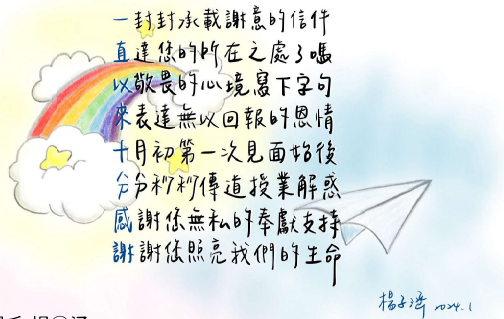 一封封承載謝意的信件
直達您的所在之處了嗎
以敬畏的心境寫下字句
來表達無以回報的恩情
十月初第一次見面始後
分分秒秒傳道授業解惑
感謝您無私的奉獻支持
謝謝您照亮我們的生命
楊子濟 2024.1